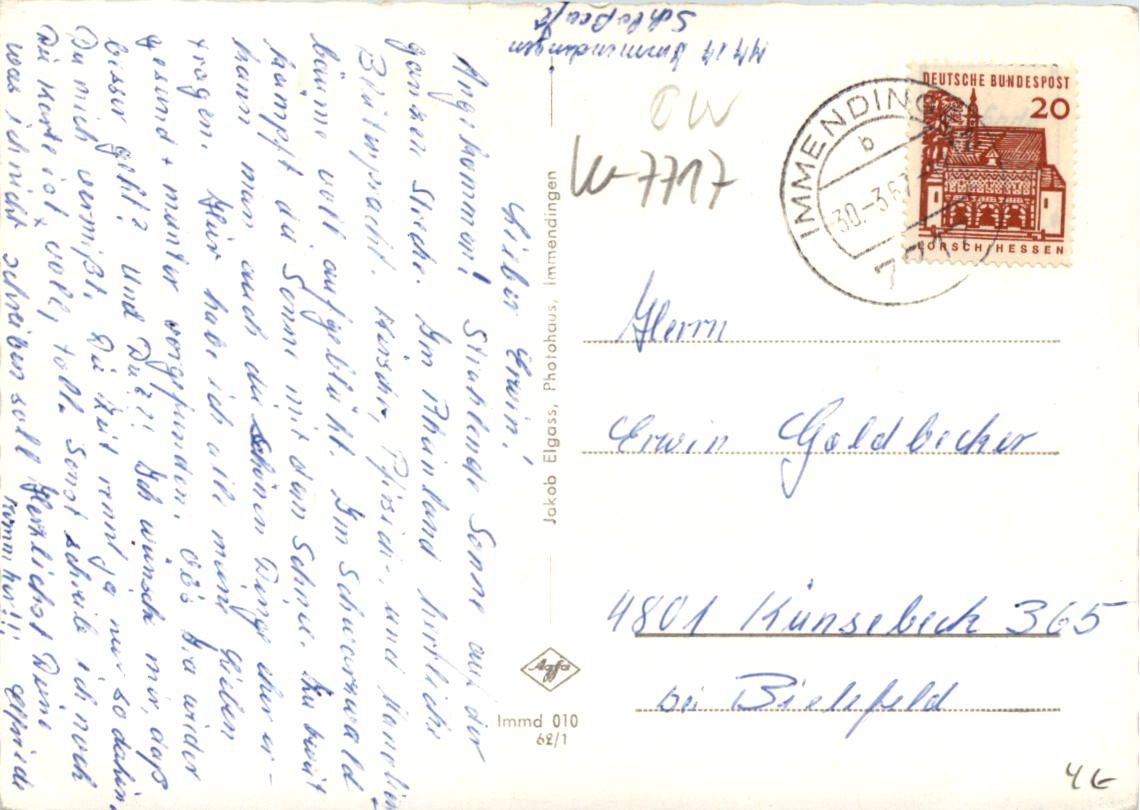 7717 Immendingen
Schloßcafé
Lieber Erwin!
Angekommen! Strahlende Sonne auf der
ganzen Strecke. Im Rheinland herrliche
Blütenpracht. Kirsch-, Pfirsich-, und Mandel-
bäume voll aufgeblüht. Im Schwarzwald
kämpft die Sonne mit dem Schnee.
kann man auch die schönen Dinge eher er-
tragen. Hier habe ich alle meine Lieben
gesund + munter vorgefunden. Ob's wieder
besser geht? Und Dir?! Ich wünsche mir, daß
Du mich vermißt. Die Zeit rennt ja nur so dahin.
Die Karte ist voll, toll. Sonst schreibe ich noch
was ich nicht schreiben soll. Herzlichst Deine
Komm her!!! Elfriede
Jakob Elgass, Photohaus, Immendingen
Agfa
Immd 010
62/1
OW
W-7717
IMMENDINGEN
b
30.-3.67
DEUTSCHE BUNDESPOST
20
LORSCH/HESSEN
Herrn
Erwin Goldbecker
4801 Künsebeck 365
bei Bielefeld
4€